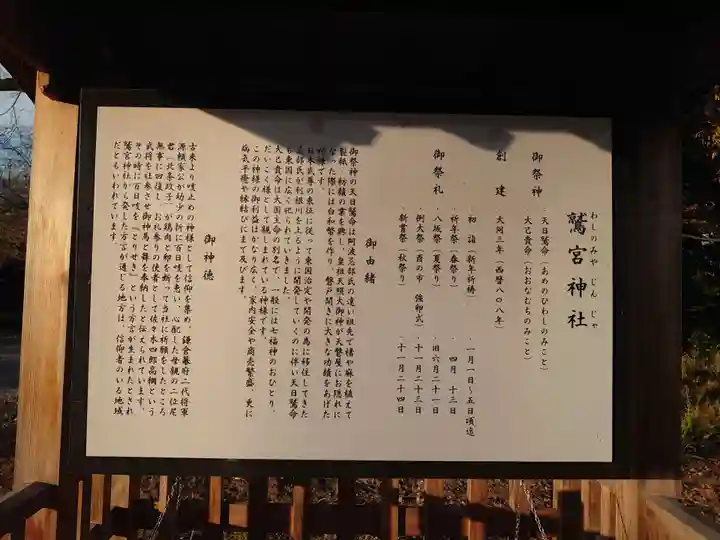 わしのみや じん じゃ
鷲宮神社
御祭神
天日鷲命(あめのひわしのみこと)
大己貴命(おおなむちのみこと)
創建
大同三年(西暦八〇八年)
御祭礼
・初詣(新年祈祷)・一月一日～五日頃迄
・祈年祭(春祭り)・四月十三日
・八坂祭(夏祭り)・旧六月二十一日
・例大祭(酉の市 強卵式)・十一月二十三日
・新嘗祭(秋祭り)・十一月二十四日
御由緒
御祭神の天日鷲命は阿波忌部氏の遠い祖先で楮や麻を植えて
製紙、紡績の業を興し、皇祖天照大御神が天磐屋にお隠れに
なった際には白和幣を作り、磐戸開きに大きな功績をあげた
神様です。
日本武尊の東征に従って東国治定や開発の為に移住してきた
忌部氏が利根川を上るように開発していくのに伴い天日鷲命
も東国に広く祀られていきました。
大己貴命は大国主命の別名で、一般には七福神のおひとり、
だいこく様として親しまれている神様です。
この神様の御利益はかなり広く、家内安全や商売繁盛、更に
病気平癒や縁結びにまで及びます。
御神徳
古来より咳止めの神様として信仰を集め、鎌倉幕府二代将軍
源頼家公が幼少の折に百日咳を患い、心配した母親の二位尼
君(北条政子)が鶏肉と卵を断って当社に祈願をしたところ
無事に回復し、お礼参りの使者として佐々木四郎高綱という
武将を社参させ御神馬と舞を奉納したと伝えられています。
その時に百日咳を『とりせき』という方言が生まれたとされ
鷲宮神社から発した方言が通じる地方は、信仰者のいる地域
だともいわれています。